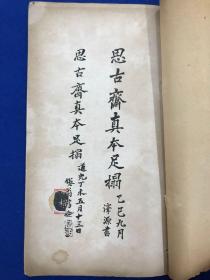 思古齋真本足搨
乙巳九月
澤源書
思古齋真本足搨
道光丁未五月十三日